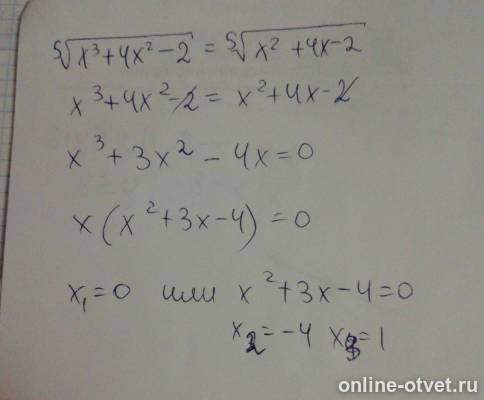 ⁵√(x³+4x²-2) = ⁵√(x²+4x-2)
x³+4x²-2 = x²+4x-2
x³+3x²-4x=0
x(x²+3x-4)=0
x₁=0 или x²+3x-4=0
x₂=-4 x₃=1
online-otvet.ru